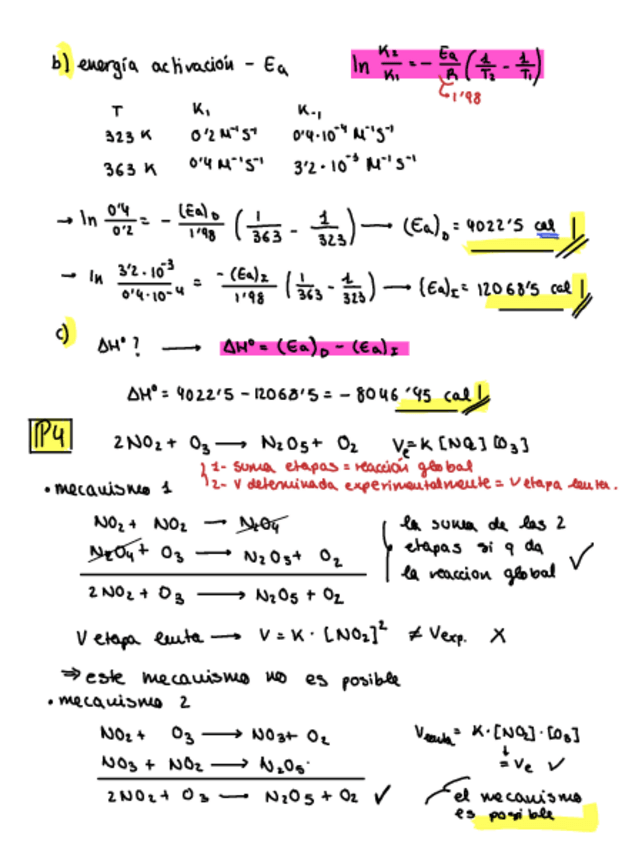 b) energía activación - Ea ln K2/K1 = - Ea/R (1/T2 - 1/T1)
↳1'98
T K1 K-1
323 K 0'2 M⁻¹S⁻¹ 0'4·10⁻⁴ M⁻¹S⁻¹
363 K 0'4 M⁻¹S⁻¹ 3'2·10⁻³ M⁻¹S⁻¹
→ ln 0'4/0'2 = - (Ea)D/1'98 (1/363 - 1/323) → (Ea)D = 4022'5 cal
→ ln 3'2·10⁻³/0'4·10⁻⁴ = -(Ea)I/1'98 (1/363 - 1/323) → (Ea)I = 12068'5 cal
c)
ΔHº? → ΔHº = (Ea)D - (Ea)I
ΔHº = 4022'5 - 12068'5 = - 8046'45 cal
P4 2NO2 + O3 → N2O5 + O2 Ve = K [NO2] [O3]
1- suma etapas = reacción global
• mecanismo 1 2- V determinada experimentalmente = V etapa lenta.
NO2 + NO2 → N2O4
N2O4 + O3 → N2O5 + O2
2NO2 + O3 → N2O5 + O2
la suma de las 2
etapas si q da
la reaccion global ✓
V etapa lenta → V = K · [NO2]² ≠ Vexp. X
⇒ este mecanismo no es posible
• mecanismo 2
NO2 + O3 → NO3 + O2 Vlenta = K·[NO2]·[O3]
↓
NO3 + NO2 → N2O5 = Ve ✓
2NO2 + O3 → N2O5 + O2 ✓ el mecanismo
es posible